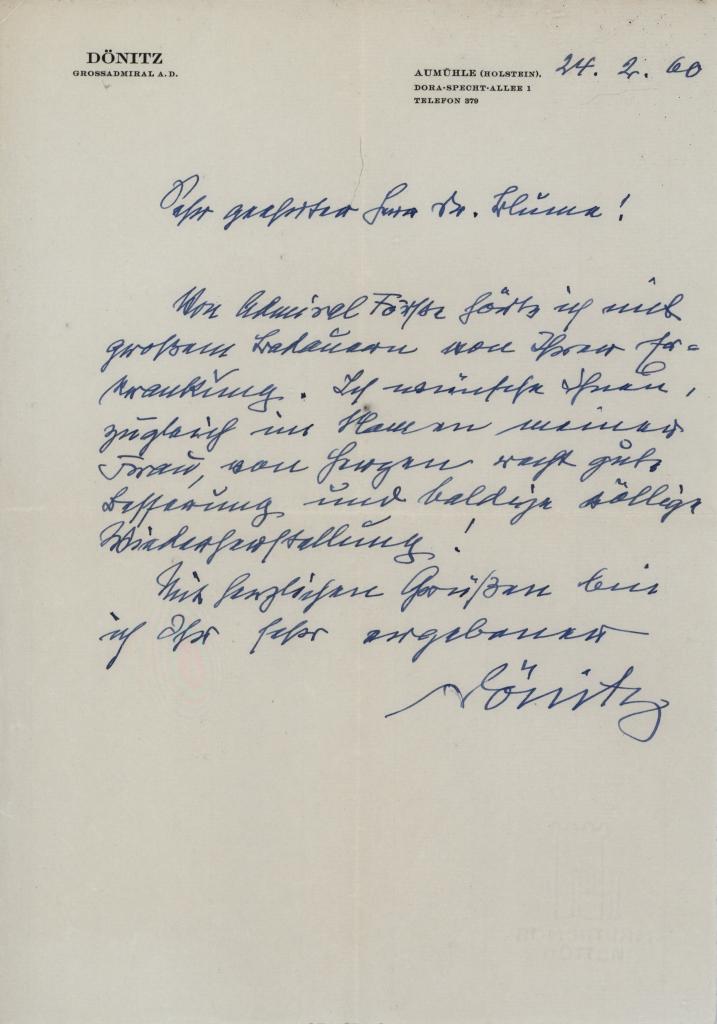 DÖNITZ
GROSSADMIRAL A. D.
AUMÜHLE (HOLSTEIN),
DORA-SPECHT-ALLEE 1
TELEFON 379
24. 2. 60
Sehr geehrter Herr Dr. Blume!
Von Admiral Förste hörte ich mit
großem Bedauern von Ihrer Er=
krankung. Ich wünsche Ihnen,
zugleich im Namen meiner
Frau, von Herzen recht gute
Besserung und baldige völlige
Wiederherstellung!
Mit herzlichen Grüßen bin
ich Ihr sehr ergebener
Dönitz